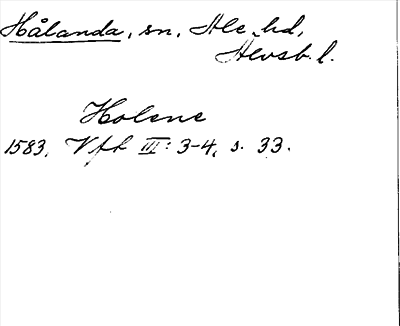 Hålanda, sn, Ale hd,
Älvsb. l.
Holene
1583. Vfh III: 3-4, s. 33.